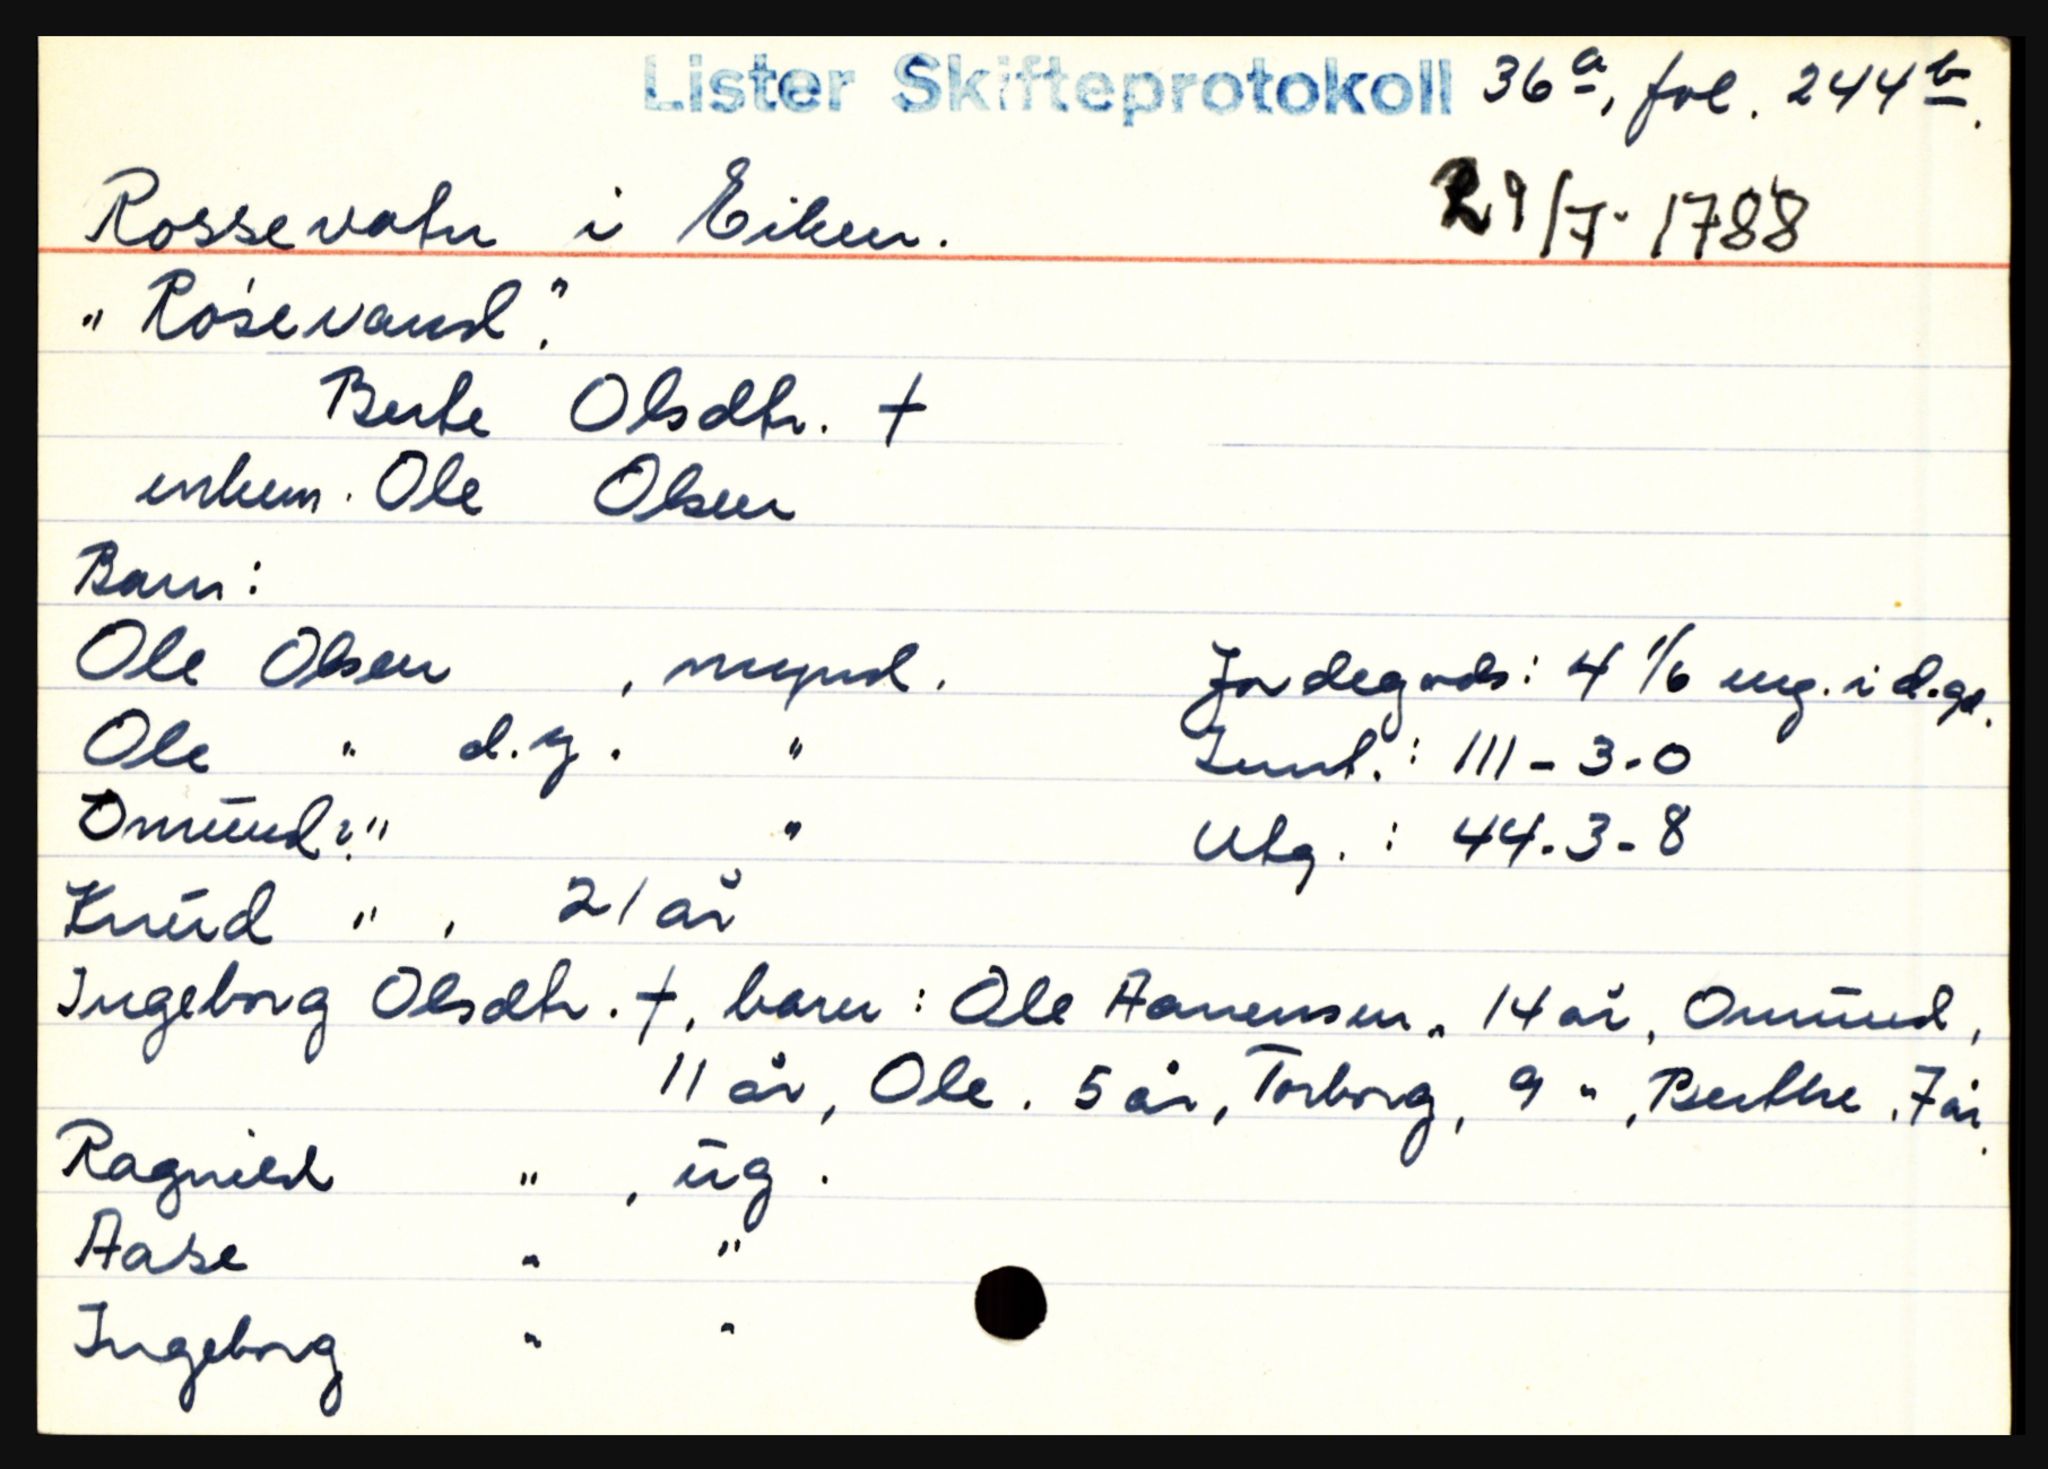 Lister Skifteprotokoll 36a, fol. 244b.
Rossevatn i Eiken. 29/7. 1788
"Rosevand".
Berte Olsdtr. †
enkem. Ole Olsen
Barn:
Ole Olsen , mynd. Jordegods: 4 1/6 eng. i d.gd.
Ole " d.y. " Innt. : 111-3-0
Omund?" " Utg. : 44-3-8
Knud " , 21 år
Ingeborg Olsdtr. †, barn: Ole Aanensen, 14 år, Omund,
11 år, Ole. 5 år, Torborg, 9 ", Berthe, 7 år.
Ragnild " , ug.
Aase " "
Ingeborg " "